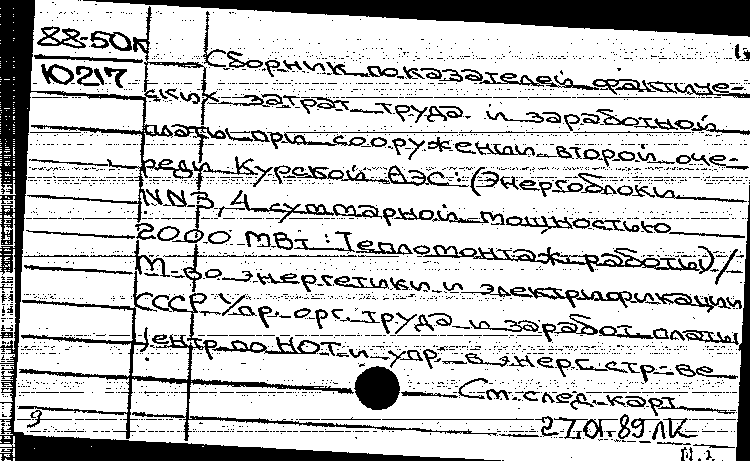 88-50к
Ю217
Сборник показателей фактиче-
ских затрат труда и заработной
платы при сооружении второй оче-
реди Курской АЭС: (Энергоблоки
NN3,4 суммарной мощностью
2000 МВт: Тепломонтаж. работы) /
М-во энергетики и электрификации
СССР. Упр. орг. труда и заработ. платы,
Центр по НОТ и упр. в энерг. стр-ве
См. след. карт.
27.01.89 ЛК
9